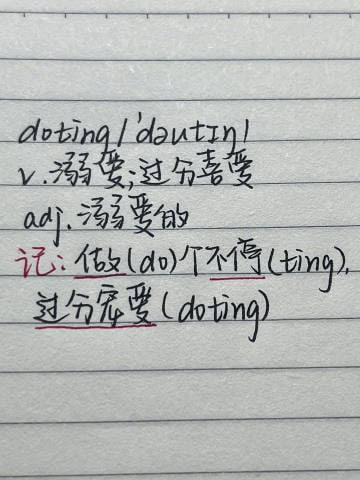 doting /ˈdəutɪŋ/
v. 溺爱;过分喜爱
adj. 溺爱的
记: 做(do)个不停(ting),
过分宠爱(doting)